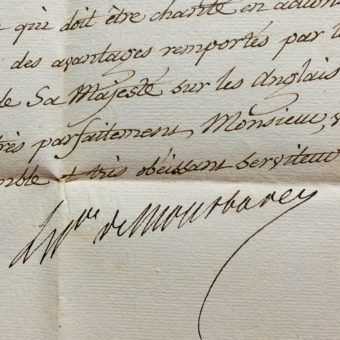 qui doit être chanté en action
des avantages remportés par l
de Sa Majesté sur les Anglais
très parfaitement, Monsieur, v
mble et très obéissant serviteur
de Montbarey